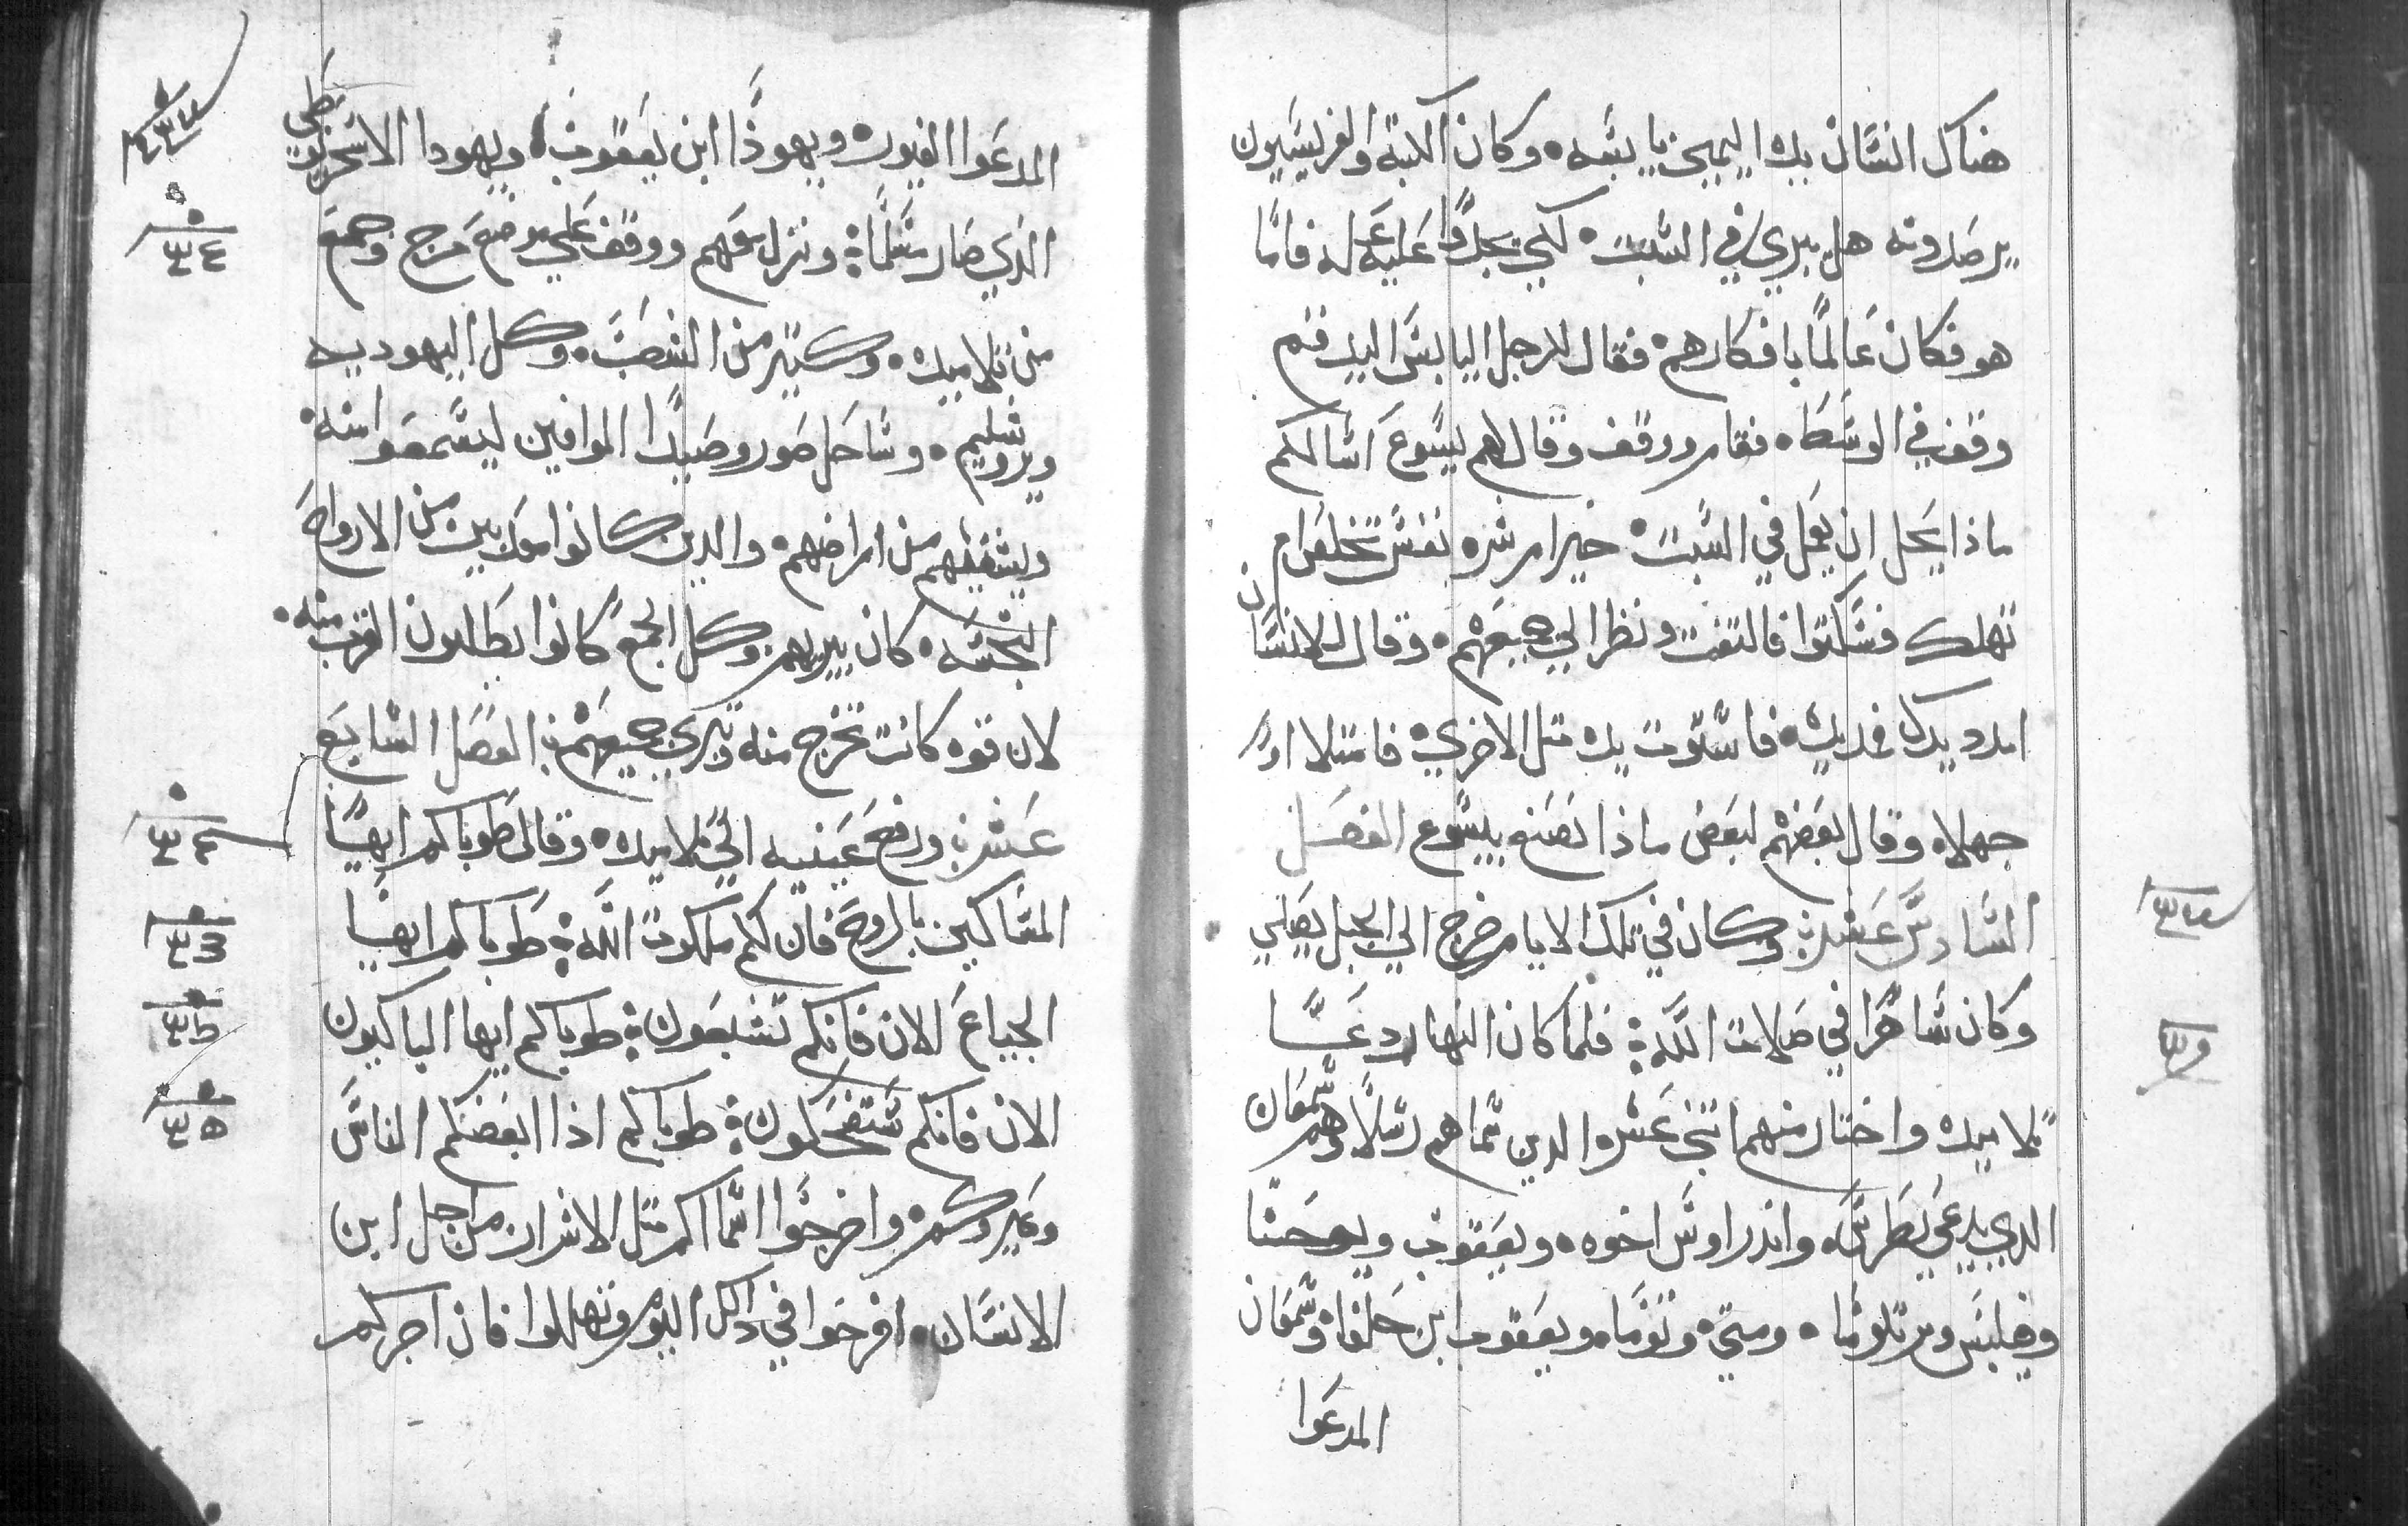 هناك انسان يده اليمين يابسه وكان الكتبة والفريسيون
يرصدونه هل يبري في السبت لكي يجدوا عليه عله فاما
هو فكان عالما بافكارهم فقال للرجل اليابس اليد قم
وقف في الوسط فقام ووقف وقال لهم يسوع اسالكم
ماذا يحل ان يعمل في السبت خير ام شر نفس تخلص ام
تهلك فسكتوا فالتفت ونظر الي جميعهم وقال للانسان
امدد يدك فمد يده فاستوت يده متل الاخري فامتلااوا
جهلا وقال بعضهم لبعض ماذا نصنع بيسوع الفصل
السادس عشر وكان في تلك الايام خرج الي الجبل يصلي
وكان ساهرا في صلات الله فلما كان النهار دعا
تلاميده واختار منهم اتني عشر الدين سماهم رسلا وهم سمعان
الدي يدعي بطرس واندراوس اخوه ويعقوب ويوحنا
وفيلبس وبرتلوما ومتي وتوما ويعقوب ابن حلفا وسمعان
المدعوا
المدعوا الغيور ويهودا ابن يعقوب ويهودا الاسخريوطي
الدي صار مسلما ونزل معهم ووقف علي موضع مرج وجمع
من تلاميده وكتير من الشعب وكل اليهوديه
ويروشليم وساحل صور وصيدا الموافين ليسمعوا منه
ويشفيهم من امراضهم والدين كانوا موكبين من الارواح
النجسه كان يبريهم وكل الجمع كانوا يطلبون القرب منه
لان قوه كانت تخرج منه وتبري جميعهم الفصل السابع
عشر ورفع عينيه الي تلاميده وقال طوباكم ايها
المساكين بالروح فان لكم ملكوت الله طوباكم ايها
الجياع الان فانكم تشبعون طوباكم ايها الباكيون
الان فانكم ستضحكون طوباكم ادا ابغضكم الناس
وعيروكم واخرجوا اسماكم متل الاشرار من اجل ابن
الانسان افرحوا في دلك اليوم وتهللوا فان اجركم